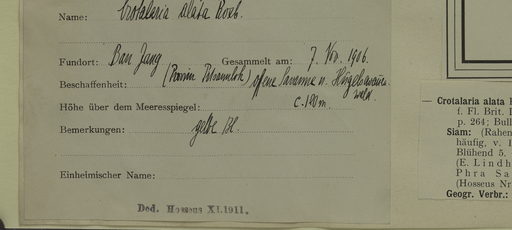 Name: Crotalaria alata Roxb.
Fundort: Ban Jang Gesammelt am: 7. Nov. 1906.
Beschaffenheit: (Provinz Pitsanulok) offene Savanne u. Hügelsavannen
wald.
Höhe über dem Meeresspiegel: c. 120 m.
Bemerkungen: gelbe Bl.
Einheimischer Name:
Ded. Hosseus XI.1911.
— Crotalaria alata
f. Fl. Brit. I
p. 264; Bull
Siam: (Rahen
häufig, v. I
Blühend 5.
(E. Lindh
Phra Sa
(Hosseus Nr
Geogr. Verbr.: